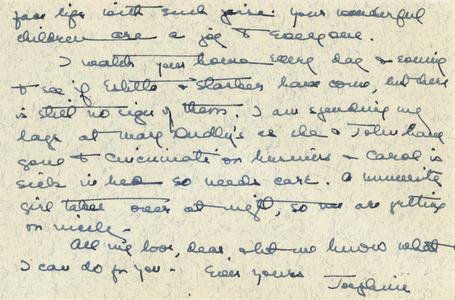 face life with such poise. Your wonderful
children are a joy to everyone.
I watch your home every day & evening
to see if Estelle & Starkes have come, but there
is still no sign of them. I am spending my
days at Mary Dudly's as she & John have
gone to Cincinnati on business & Carol is
sick in bed so needs care. A university
girl takes over at night, so we are getting
on nicely.
All my love, dear, & let me know what
I can do for you - Ever yours
Josephine